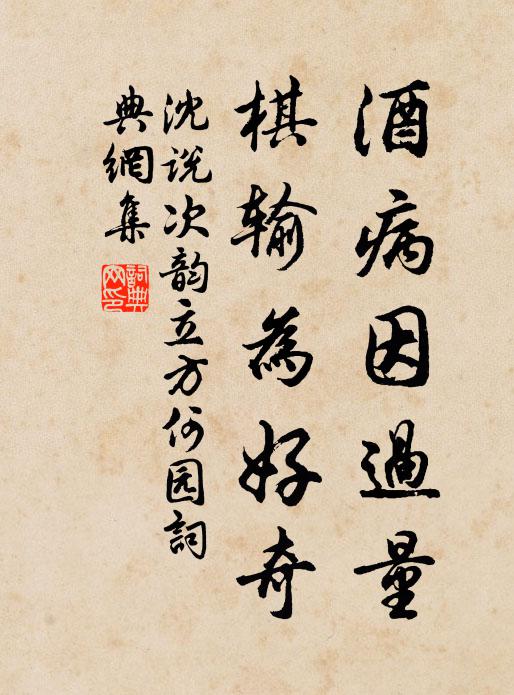 酒病因過量
棋输為好奇
沈说次韵立方何园詞
典網集
詞典网印